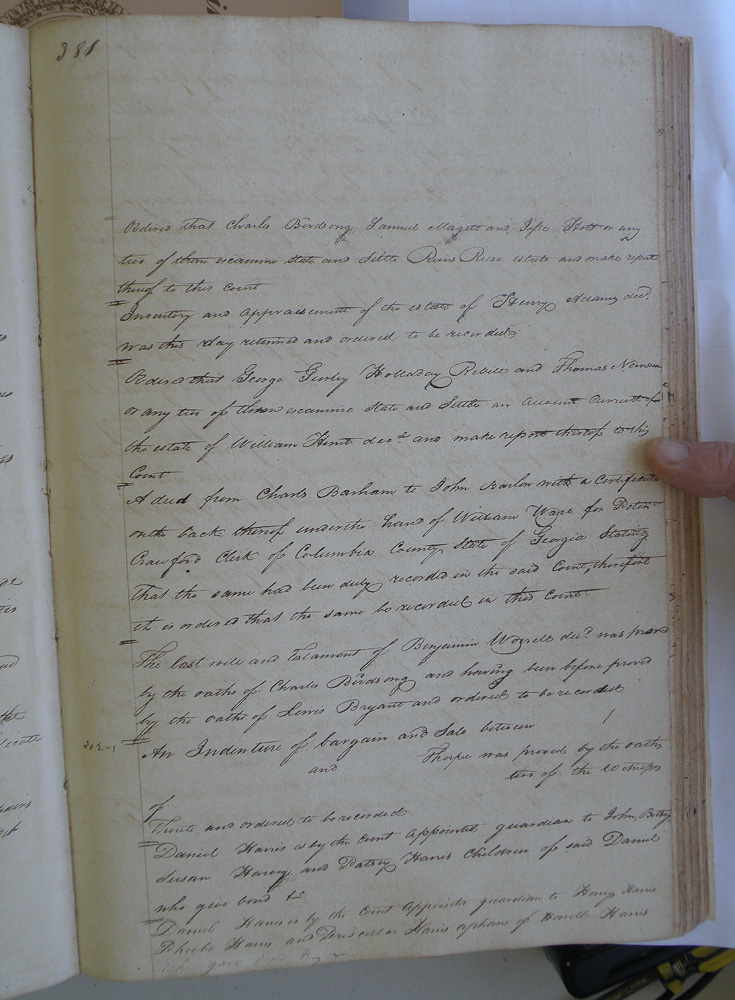 381
Ordered that Charles Birdsong Samuel Magett and Jesse Holt or any
two of them examine State and Settle Reese estate and make report
thereof to this Court
Inventory and Appraisement of the estate of Henry Adams decd.
was this day returned and ordered to be recorded
Ordered that George Gurley Holladay Rebele and Thomas Newsum
or any two of them examine State and Settle an Account Current for
the estate of William Hunt decd. and make report thereof to this
Court
A deed from Charles Barham to John Barlow with a Certificate
on the back thereof under the hand of William Ware for
Crawford Clerk of Columbia County State of Georgia Stating
that the same had been duly recorded in the said Court, therefore
it is ordered that the same be recorded in this Court
The last will and Testament of Benjamin Worrell decd. was proved
by the oaths of Charles Birdsong and having been before proved
by the oaths of Lewis Bryant and ordered to be recorded
An Indenture of bargain and Sale between
and Thorpe was proved by the oaths
of two of the witnesses
thereto and ordered to be recorded
Daniel Harris is by the Court Appointed guardian to John, Betsy
Susan Harvy and Patsey Harris Children of said Daniel
who give bond &c
Daniel Harris is by the Court Appointed guardian to Henry Harris
Phoebe Harris and Driscilla Harris orphans of Howell Harris
who gave bond